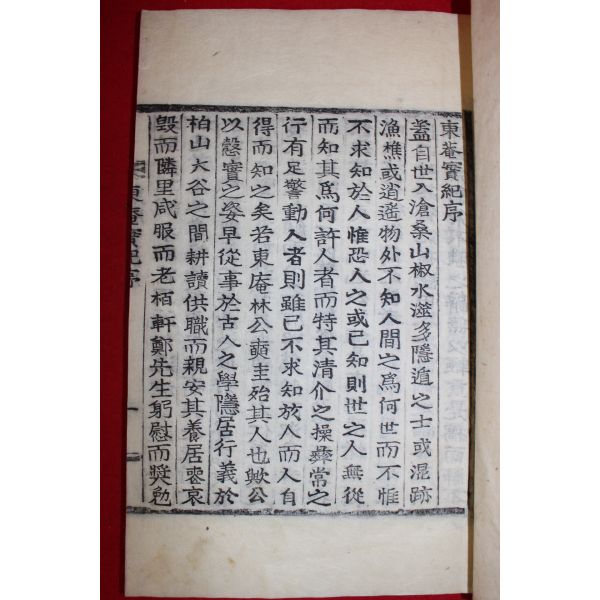 東菴實紀序
盖自世入滄桑山椒水澨多隱遁之士或混跡
漁樵或逍遙物外不知人間之爲何世而不惟
不求知於人惟恐人之或已知則世之人無從
而知其爲何許人者而特其清介之操彝常之
行有足警動人者則雖已不求知於人而人自
得而知之矣若東庵林公奭圭殆其人也歟公
以慤實之姿早從事於古人之學隱居行義於
柏山大谷之間耕讀供職而親安其養居喪哀
毁而隣里咸服而老栢軒鄭先生躬慰而奬勉
東菴實紀序
一